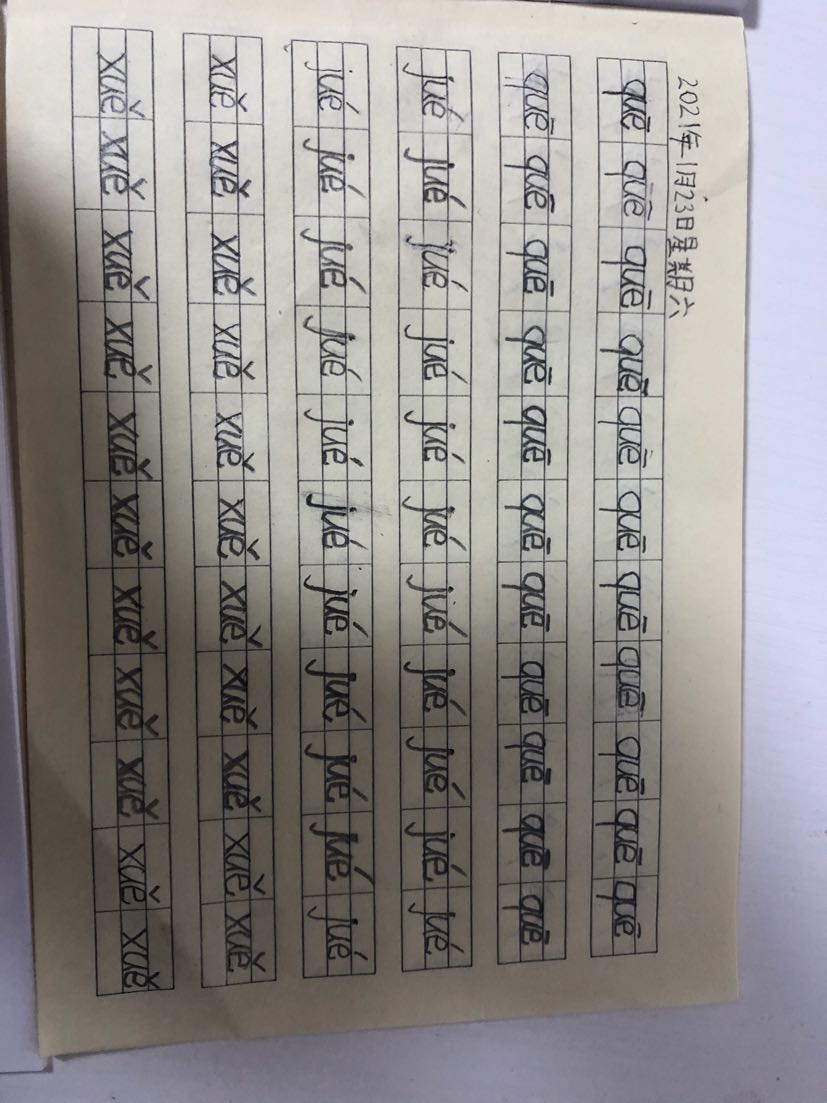 2021年1月23日星期六
quē quē quē quē quē quē quē quē quē quē quē
quē quē quē quē quē quē quē quē quē quē quē
jué jué jué jué jué jué jué jué jué jué jué
jué jué jué jué jué jué jué jué jué jué jué
xuě xuě xuě xuě xuě xuě xuě xuě xuě xuě xuě
xuě xuě xuě xuě xuě xuě xuě xuě xuě xuě xuě